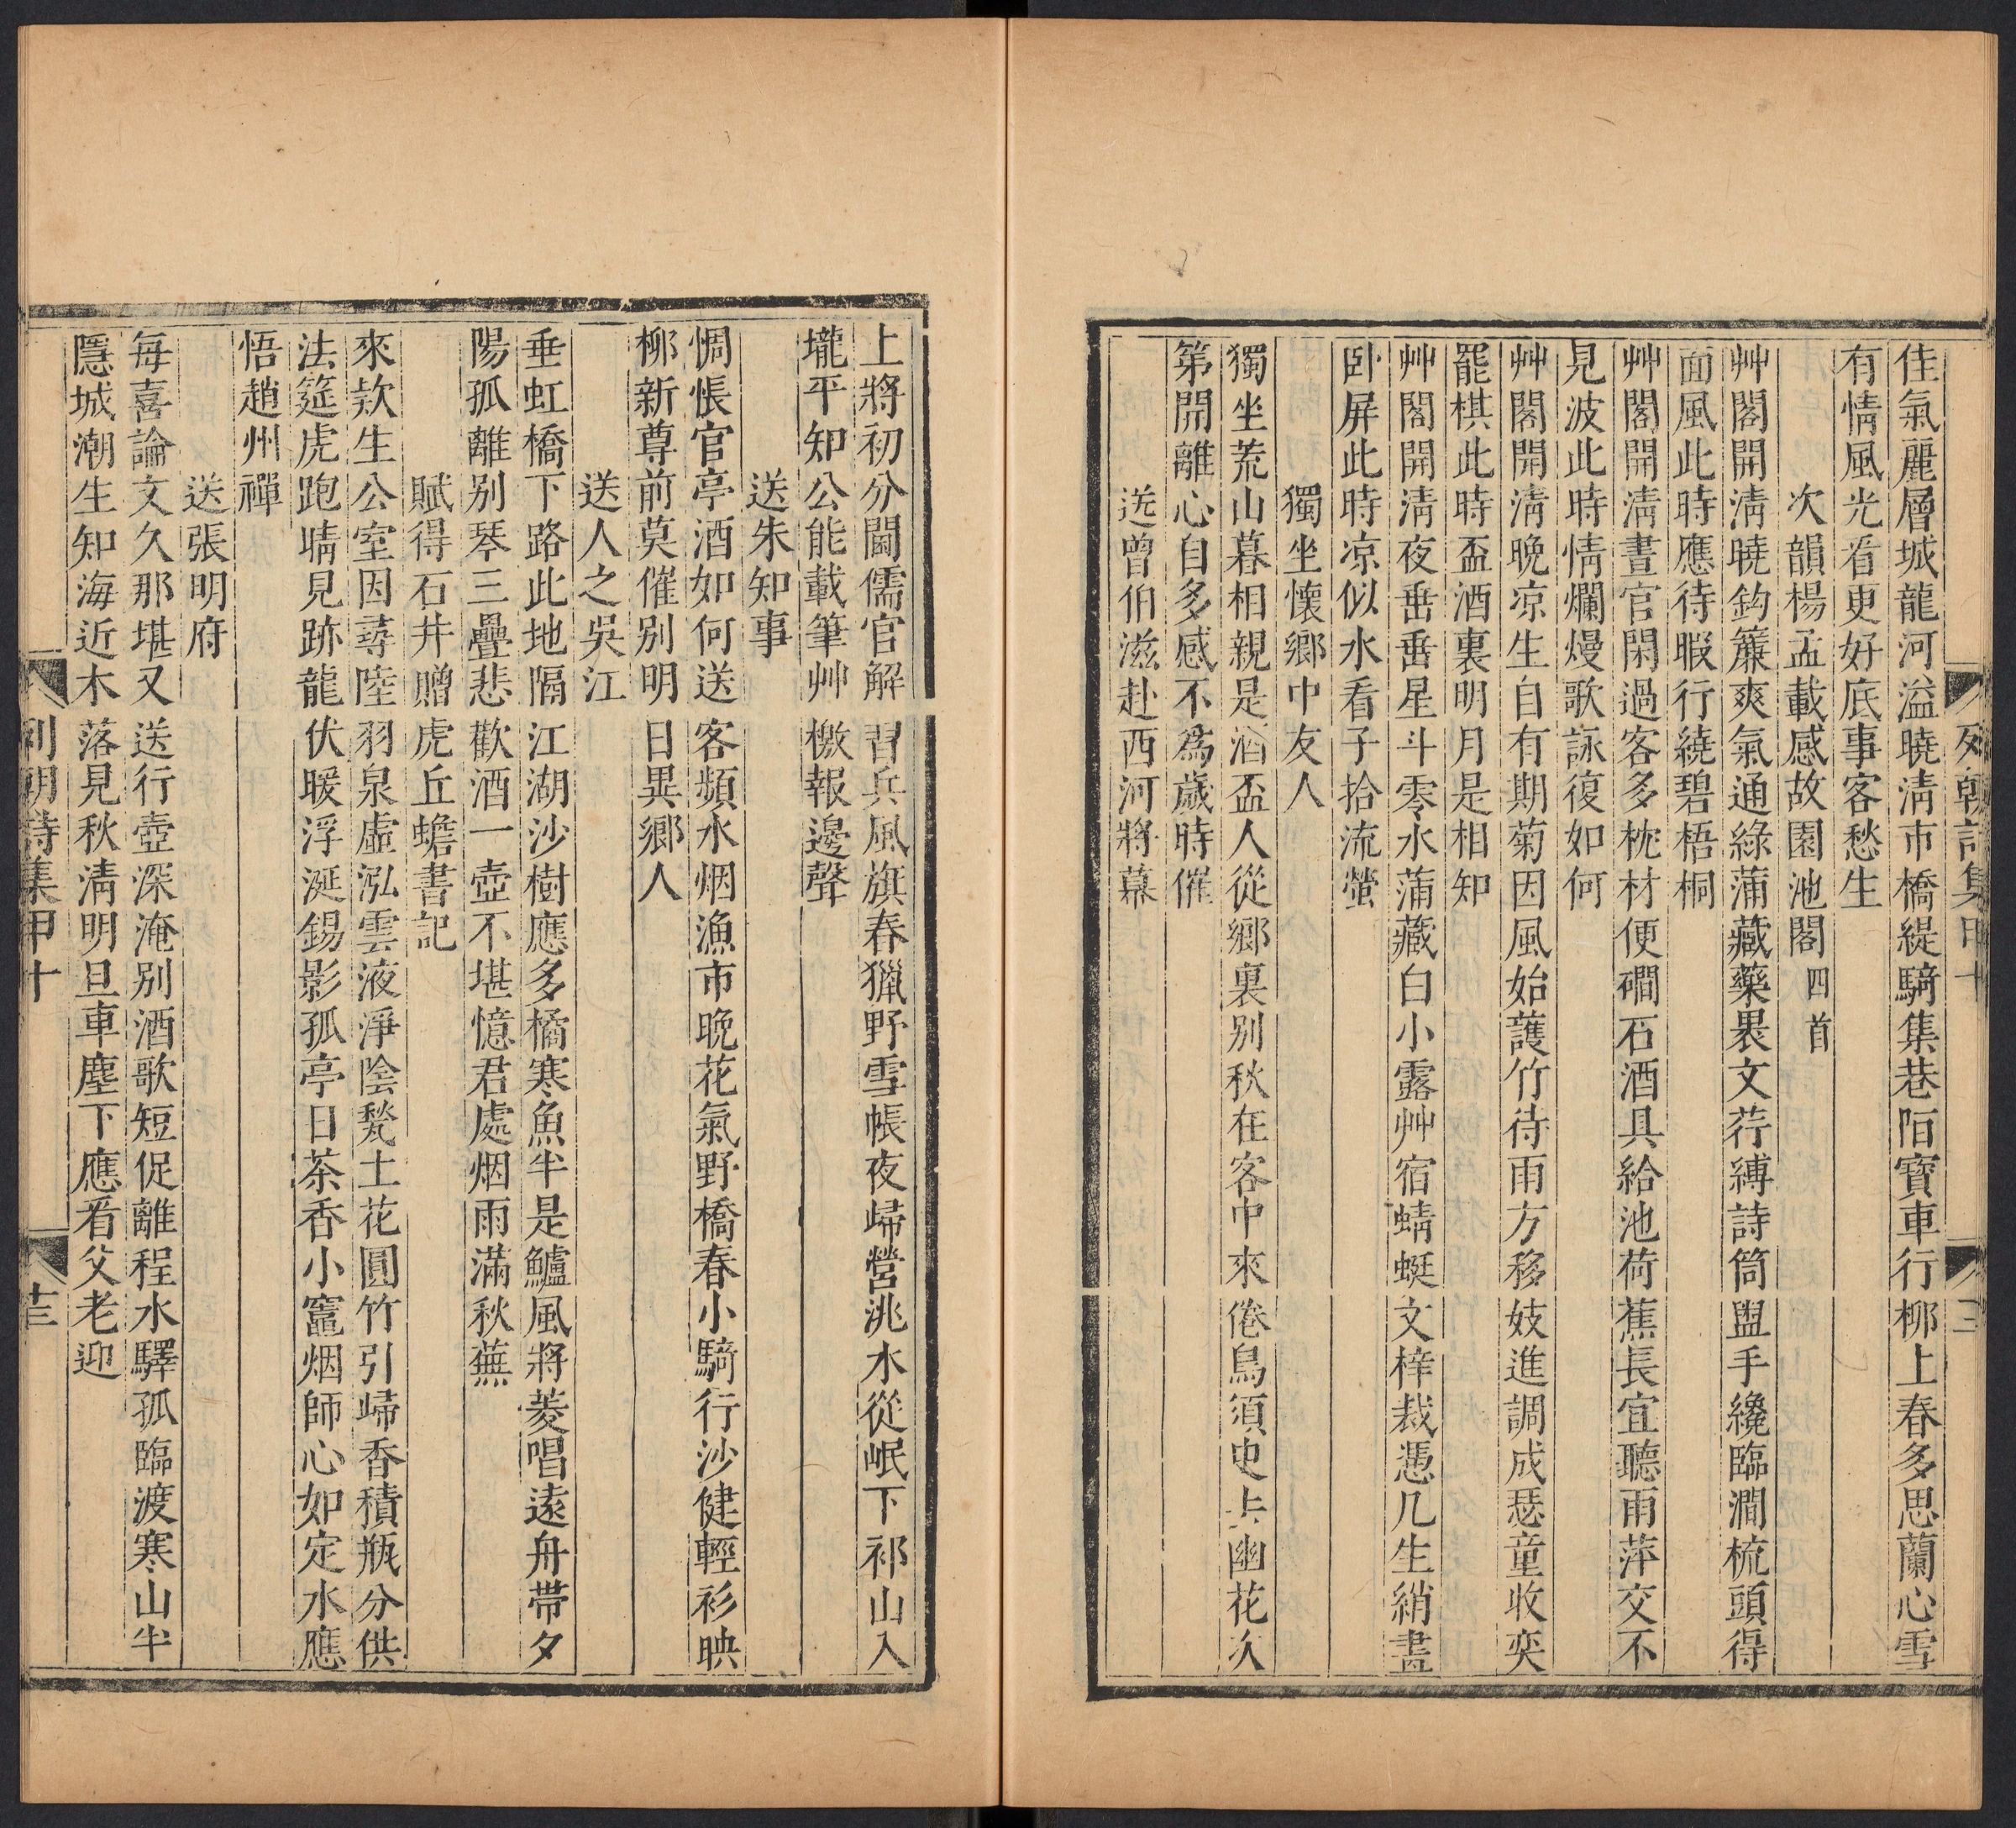 列朝詩集甲十
三
佳氣麗層城龍河溢曉淸市橋緹騎集巷陌寶車行柳上春多思蘭心雪
有情風光看更好底事客愁生
次韻楊孟載感故園池閣四首
艸閣開淸曉鈎簾爽氣通綠蒲藏藥褁文荇縛詩筒盥手纔臨澗梳頭得
面風此時應待暇行繞碧梧桐
艸閣開淸晝官閑過客多枕材便磵石酒具給池荷蕉長宜聽雨萍交不
見波此時情爛熳歌詠復如何
艸閣開淸晚凉生自有期菊因風始護竹待雨方移妓進調成瑟童收奕
罷棋此時盃酒裏明月是相知
艸閣開淸夜垂垂星斗零水蒲藏白小露艸宿蜻蜓文梓裁憑几生綃畫
卧屏此時凉似水看子拾流螢
獨坐懷鄉中友人
獨坐荒山暮相親是酒盃人從鄉裏别秋在客中來倦鳥須臾幽花久
第開離心自多感不爲歲時催
送曾伯滋赴西河將幕
上將初分閫儒官解習兵風旗春獵野雪帳夜歸營洮水從岷下祁山入
壠平知公能載筆艸檄報邊聲
送朱知事
惆悵官亭酒如何送客頻水烟漁市晚花氣野橋春小騎行沙健輕衫映
柳新尊前莫催别明日異鄉人
送人之吳江
垂虹橋下路此地隔江湖沙樹應多橘寒魚半是鱸風將菱唱遠舟帶夕
陽孤離别琴三疊悲歡酒一壺不堪憶君處烟雨滿秋蕪
賦得石井贈虎丘蟾書記
來欵生公室因尋陸羽泉虛泓雲液淨陰甃土花圓竹引歸香積瓶分供
法筵虎跑晴見跡龍伏暖浮涎錫影孤亭日茶香小竈烟師心如定水應
悟趙州禪
送張明府
每喜論文久那堪又送行壺深淹别酒歌短促離程水驛孤臨渡寒山半
隱城潮生知海近木落見秋淸明旦車塵下應看父老迎
列朝詩集甲十
廿三